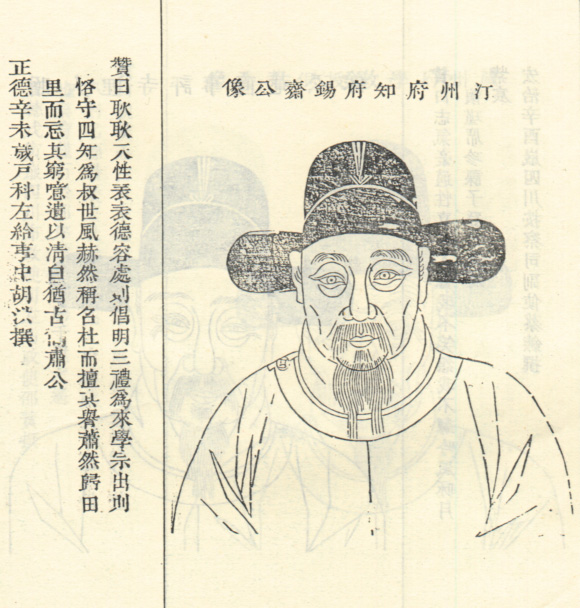 汀州府知府錫齋公像
贊曰耿耿天性表表德容處則倡明三禮爲來學宗出則
恪守四知爲叔世風赫然稱名杜而擅其譽蕭然歸田
里而忘其窮噫遺以清白猶古肅公
正德辛未歲戶科左給事中胡撰